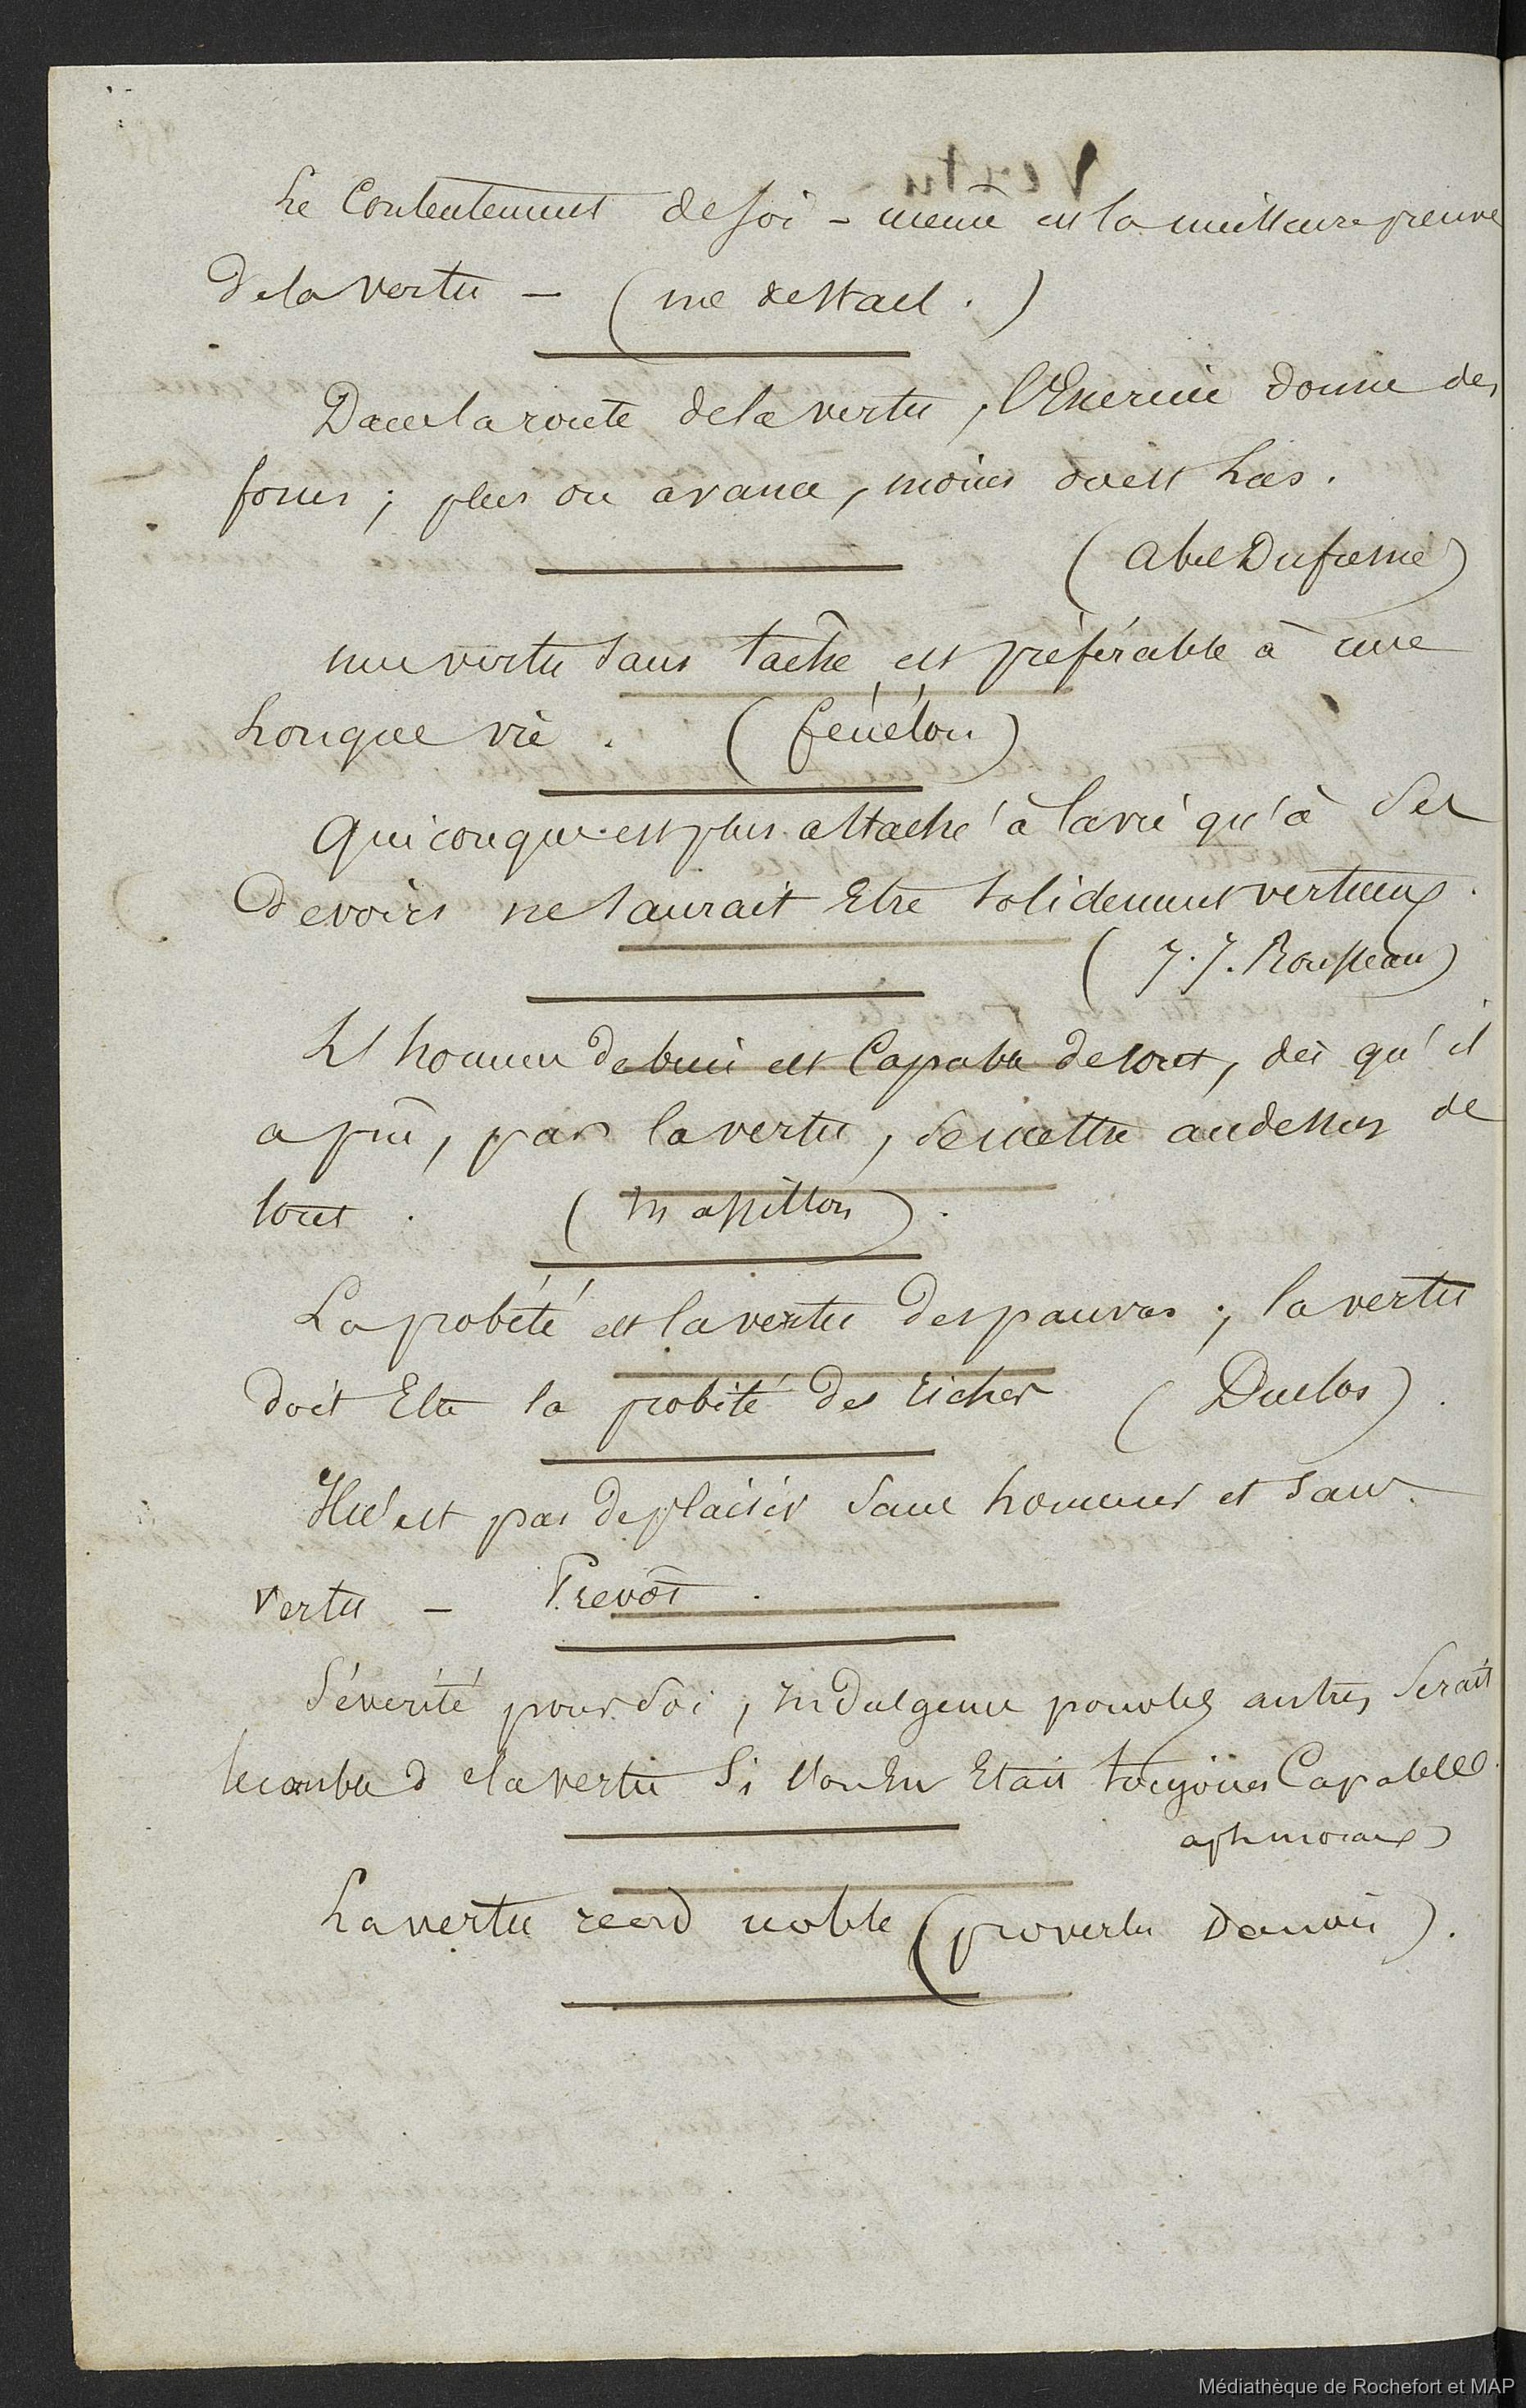 Le Contentement de soi-même est la meilleure preuve
de la vertu — (me de Stael.)
Dans la route de la vertu, l'Exercice donne des
forces; plus on avance, moins on est las.
(abel Dufresne)
une vertu sans tache est préférable à une
Longue vie. (fénélon)
Quiconque est plus attaché à la vie qu'à ses
Devoirs ne saurait Etre solidement vertueux.
(J. J. Rousseau)
L'homme de bien est Capable de tout, dès qu'il
a pû, par la vertu, se mettre au dessus de
tout. (Massillon).
La probité est la vertu des pauvres; la vertu
doit Etre la probité des riches (Duclos).
Il n'est pas de plaisir sans honneur et sans
vertu — Prevôt.
Sévérité pour soi, indulgence pour les autres serait
le comble de la vertu si l'on En Etait toujours Capable.
aph moraux
La vertu rend noble (proverbe Danois).
Médiathèque de Rochefort et MAP